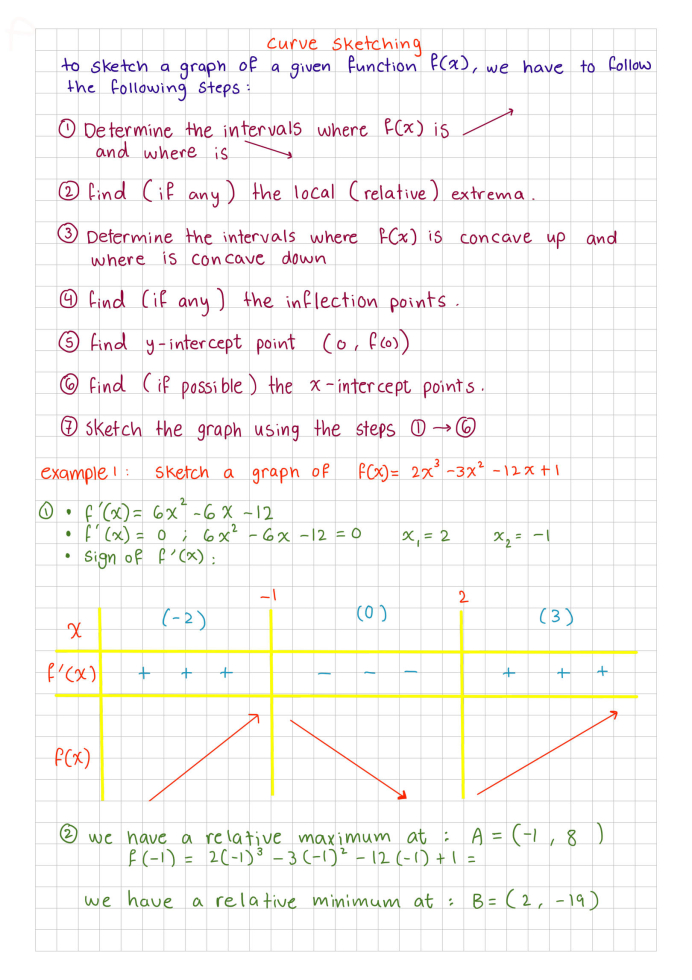 curve sketching
to sketch a graph of a given function f(x), we have to follow
the following steps:
① Determine the intervals where f(x) is ↗
and where is ↘
② find (if any) the local (relative) extrema.
③ Determine the intervals where f(x) is concave up and
where is concave down
④ find (if any) the inflection points.
⑤ find y-intercept point (0, f(0))
⑥ find (if possible) the x-intercept points.
⑦ sketch the graph using the steps ① → ⑥
example 1: sketch a graph of f(x)= 2x³ -3x² -12x +1
① • f'(x)= 6x² -6x -12
• f'(x) = 0 ; 6x² - 6x -12 = 0 x₁ = 2 x₂ = -1
• sign of f'(x):
-1 2
x (-2) (0) (3)
f'(x) + + + - - - + + +
f(x) ↗ ↘ ↗
② we have a relative maximum at : A = (-1, 8 )
f(-1) = 2(-1)³ - 3(-1)² - 12(-1) + 1 =
we have a relative minimum at : B = (2, -19)